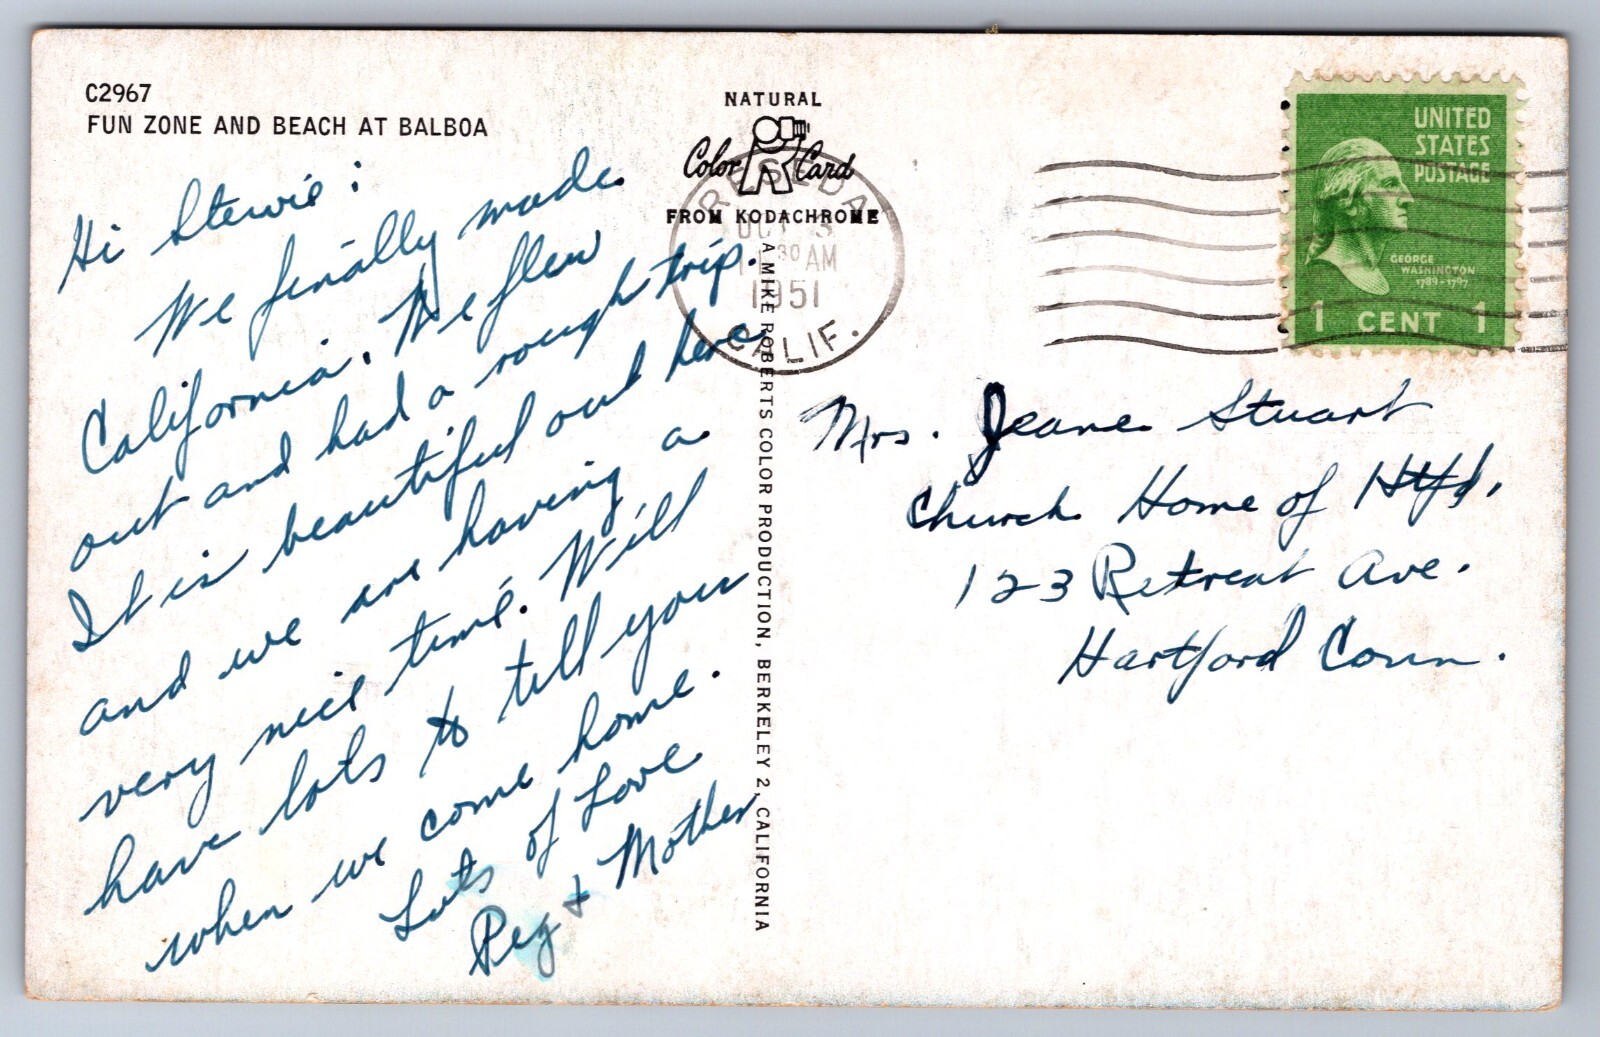 C2967
FUN ZONE AND BEACH AT BALBOA
Hi Stewie :
We finally made
California. We flew
out and had a rough trip.
It is beautiful out here
and we are having a
very nice time. Will
have lots to tell you
when we come home.
Lots of Love
Peg + Mother
NATURAL
Color Card
FROM KODACHROME
RESEDA
OCT 3
11 30 AM
1951
CALIF.
A MIKE ROBERTS COLOR PRODUCTION, BERKELEY 2, CALIFORNIA
UNITED
STATES
POSTAGE
GEORGE
WASHINGTON
1789-1797
1 CENT 1
Mrs. Jeane Stuart
Church Home of Htfd.
123 Retreat Ave.
Hartford Conn.